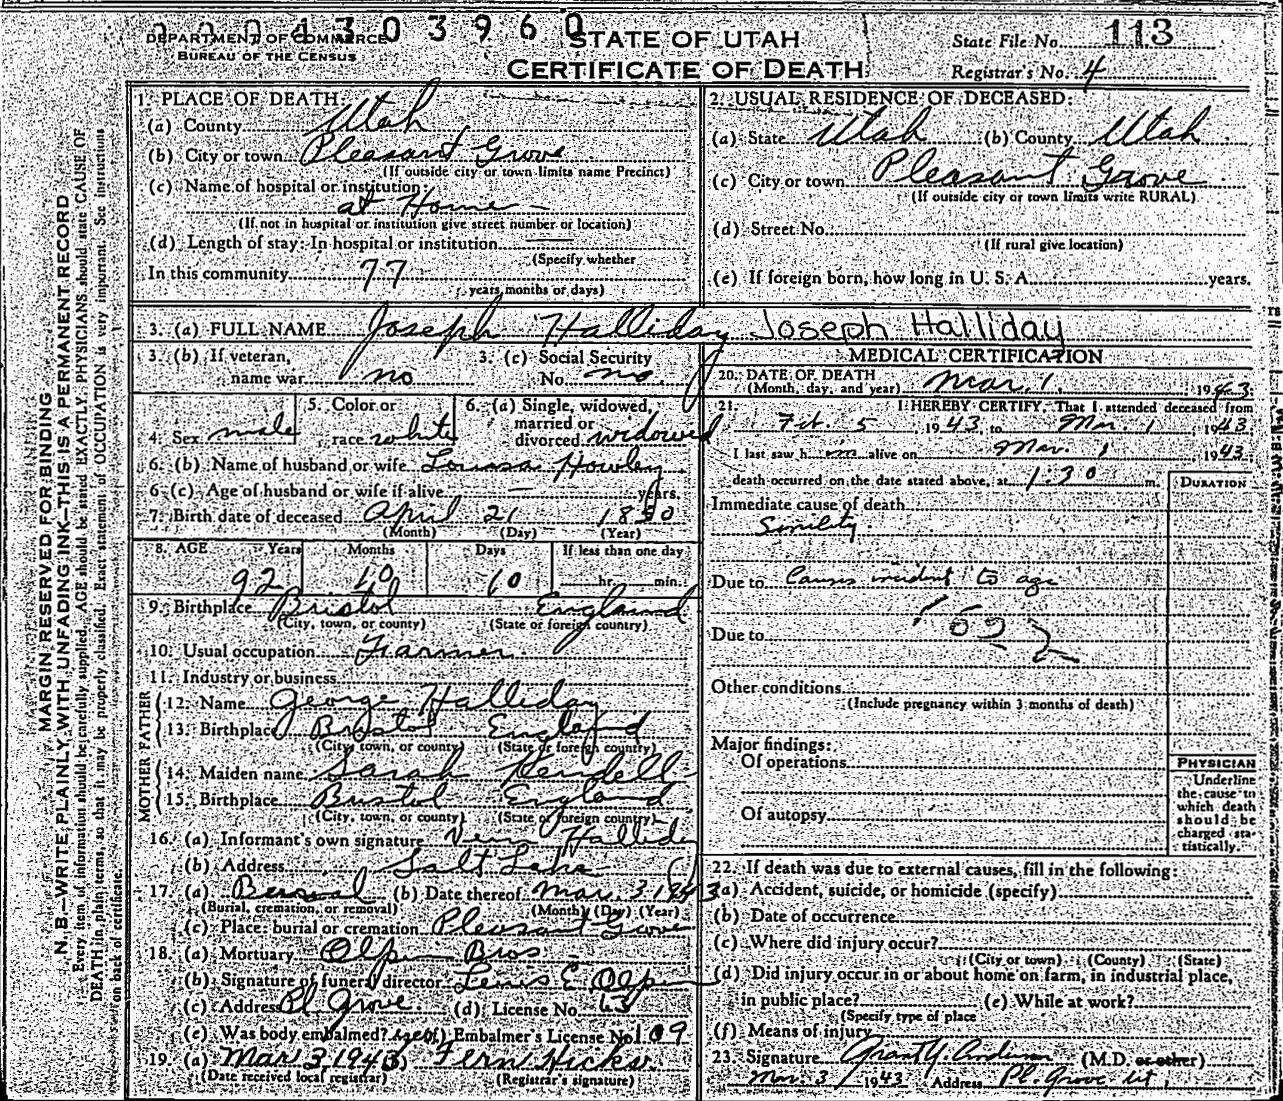 0004303960
DEPARTMENT OF COMMERCE
BUREAU OF THE CENSUS
STATE OF UTAH
CERTIFICATE OF DEATH
State File No. 113
Registrar's No. 4
MARGIN RESERVED FOR BINDING
N. B.—WRITE PLAINLY WITH UNFADING INK—THIS IS A PERMANENT RECORD
Every item of information should be carefully supplied. AGE should be stated EXACTLY. PHYSICIANS should state CAUSE OF
DEATH in plain terms, so that it may be properly classified. Exact statement of OCCUPATION is very important. See instructions
on back of certificate.
1. PLACE OF DEATH:
(a) County Utah
(b) City or town Pleasant Grove
(If outside city or town limits name Precinct)
(c) Name of hospital or institution:
at Home
(If not in hospital or institution give street number or location)
(d) Length of stay: In hospital or institution
(Specify whether
In this community 77
years, months or days)
2. USUAL RESIDENCE OF DECEASED:
(a) State Utah (b) County Utah
(c) City or town Pleasant Grove
(If outside city or town limits write RURAL)
(d) Street No.
(If rural give location)
(e) If foreign born, how long in U. S. A. years.
3. (a) FULL NAME Joseph Halliday Joseph Halliday
3. (b) If veteran, name war no
3. (c) Social Security No. no
4. Sex male
5. Color or race white
6. (a) Single, widowed, married or divorced widowed
6. (b) Name of husband or wife Louisa Howley
6. (c) Age of husband or wife if alive — years.
7. Birth date of deceased April 21 1850
(Month) (Day) (Year)
8. AGE Years Months Days If less than one day
92 10 10 hr. min.
9. Birthplace Bristol England
(City, town, or county) (State or foreign country)
10. Usual occupation Farmer
11. Industry or business
FATHER
12. Name George Halliday
13. Birthplace Bristol England
(City, town, or county) (State or foreign country)
MOTHER
14. Maiden name Sarah Kendell
15. Birthplace Bristol England
(City, town, or county) (State or foreign country)
16. (a) Informant's own signature Halliday
(b) Address Salt Lake
17. (a) Bureal (b) Date thereof Mar. 3 1943
(Burial, cremation, or removal) (Month) (Day) (Year)
(c) Place: burial or cremation Pleasant Grove
18. (a) Mortuary Olpin Bros
(b) Signature of funeral director E. Olpin
(c) Address Pl. Grove (d) License No.
(e) Was body embalmed? Embalmer's License No. 109
19. (a) Mar 3, 1943 Fern Hicks
(Date received local registrar) (Registrar's signature)
MEDICAL CERTIFICATION
20. DATE OF DEATH
(Month, day, and year) Mar. 1, 1943
21. I HEREBY CERTIFY, That I attended deceased from
Feb. 5 1943 to Mar. 1 1943
I last saw him alive on Mar. 1 1943
death occurred on the date stated above, at 1:30 m.
DURATION
Immediate cause of death
Senilty
Due to Causes incident to age
Due to
Other conditions
(Include pregnancy within 3 months of death)
Major findings:
Of operations
Of autopsy
PHYSICIAN
Underline
the cause to
which death
should be
charged sta-
tistically.
22. If death was due to external causes, fill in the following:
(a) Accident, suicide, or homicide (specify)
(b) Date of occurrence
(c) Where did injury occur?
(City or town) (County) (State)
(d) Did injury occur in or about home on farm, in industrial place,
in public place? (e) While at work?
(Specify type of place
(f) Means of injury
23. Signature Grant Y. Anderson (M.D. or other)
Mar. 3 1943 Address Pl. Grove Ut.